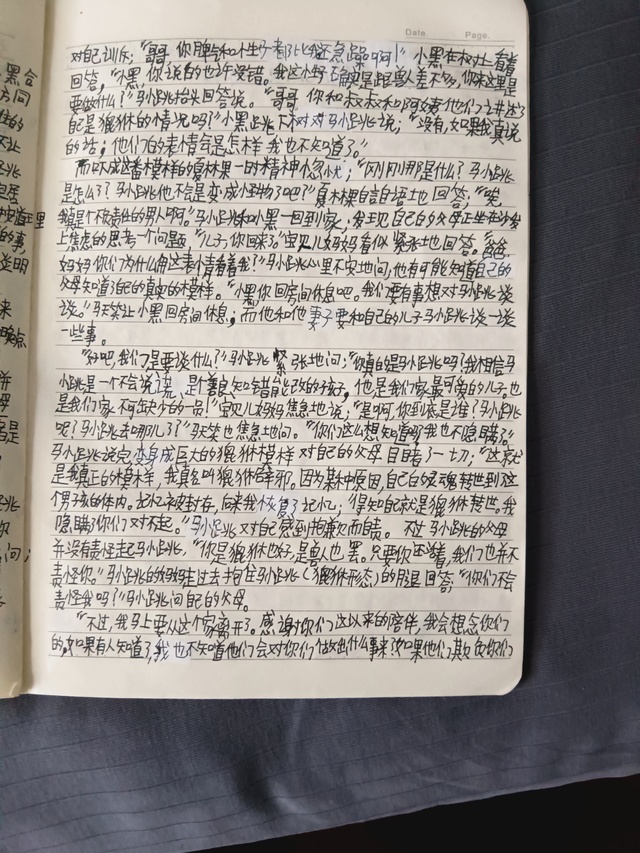 Date. Page.
对自己训斥；“哥哥 你脾气和性子都比我还急躁啊！”小黑在树上看着
回答，“小黑 你说的也许没错。我这性子确实是跟兽人差不多，你来这里是
要做什么？”马小跳抬头回答说。“哥哥 你和叔叔和阿姨他们讲述了
自己是猰貅的情况吗？”小黑跳下树对马小跳说；“没有，如果我真说
的话；他们的表情会是怎样 我也不知道了。”
而吓成这番模样的夏林果一时精神恍忽；“刚刚那是什么？马小跳
是怎么了？马小跳他不会是变成怪物了吧？”夏林果自言自语地回答；“唉，
我是个不负责任的男人啊。”马小跳和小黑一回到家；发现自己的父母正坐在沙发
上焦虑的思考一个问题，“儿子，你回来了。”宝贝儿妈妈看似紧张地回答。“爸爸
妈妈你们为什么用这表情看着我？”马小跳心里不安地问，他有可能知道自己的
父母知道了自己的真实的模样。“小黑你回房间休息吧。我们要有事想对马小跳谈
谈。”马天笑让小黑回房间休息；而他和他妻子要和自己的儿子马小跳谈一谈
一些事。
“好吧，我们是要谈什么？”马小跳紧张地问；“你真的是马小跳吗？我相信马
小跳是一个不会说谎、是个善良知错能改的孩子，他是我们家最可爱的儿子。也
是我们家不可缺少的一员！”宝贝儿妈妈焦急地说；“是啊，你到底是谁？马小跳
呢？马小跳去哪儿了？”马天笑也焦急地问。“你们这么想知道吗？我也不隐瞒了。”
马小跳说完变身成巨大的猰貅模样 对自己的父母目睹了一切；“这就
是我真正的模样，我真名叫猰貅 因为某种原因，自己的灵魂转世到这
个男孩的体内。记忆被封存，向来我恢复了记忆，得知自己就是猰貅转世。我
隐瞒了你们对不起。”马小跳又对自己感到抱歉而自责。 不过 马小跳的父母
并没有责怪起马小跳，“你是猰貅也好，是兽也罢。只要你还活着，我们也并不
责怪你。”马小跳的妈妈走过去抱住马小跳（猰貅形态）的腿回答；“你们不会
责怪我吗？”马小跳问自己的父母。
“不过，我马上要从这个家离开了。感谢你们这以来的陪伴，我会想念你们
的，如果有人知道了，我也不知道他们会对你们做出什么事来 如果他们欺负你们